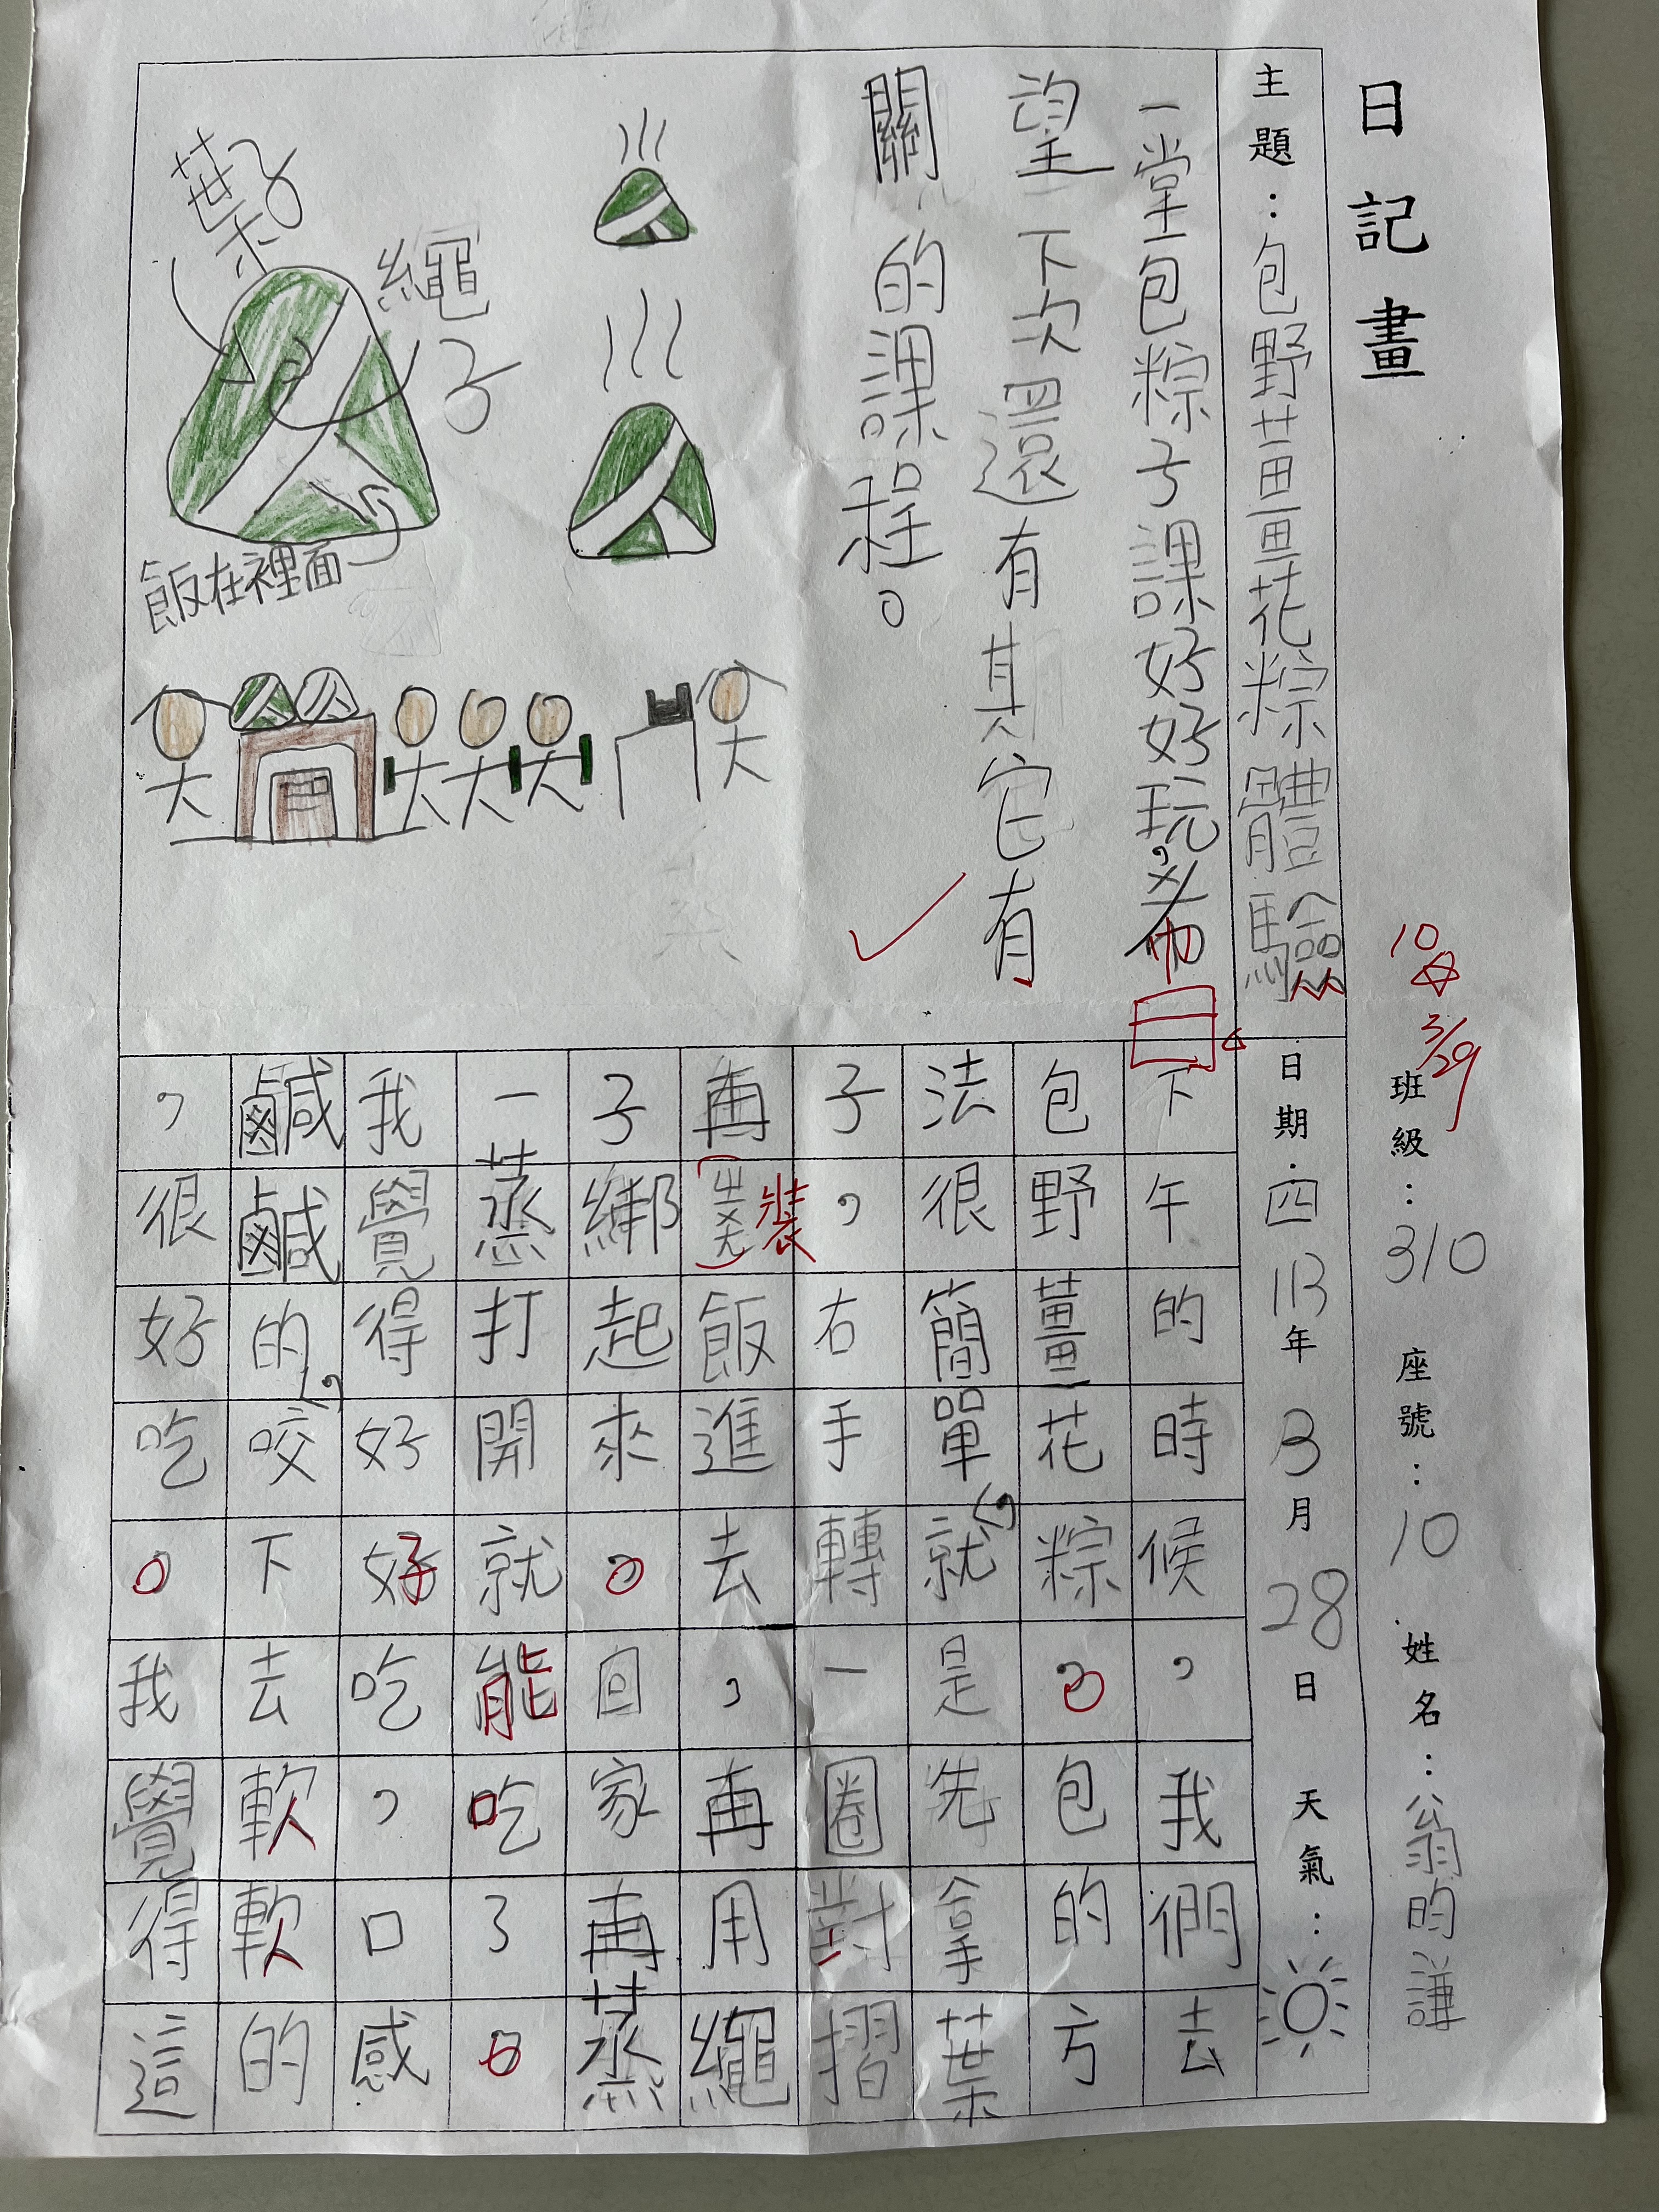 日記畫
班級：310 座號：10 姓名：翁昀謙
10
3/29
主題：包野薑薑花粽體驗
日期：四 113年3月28日 天氣：
下午的時候，我們去
包野薑花粽。包的方
法很簡單，就是先拿葉
子，右手轉一圈對摺
再裝飯進去，再用繩
子綁起來。回家再蒸
一蒸打開就能吃了。
我覺得好好吃，口感
鹹鹹的，咬下去軟軟的
，很好吃。我覺得這
一堂包粽子課好好玩，希
望下次還有其它有
關的課程。
葉子
繩子
飯在裡面